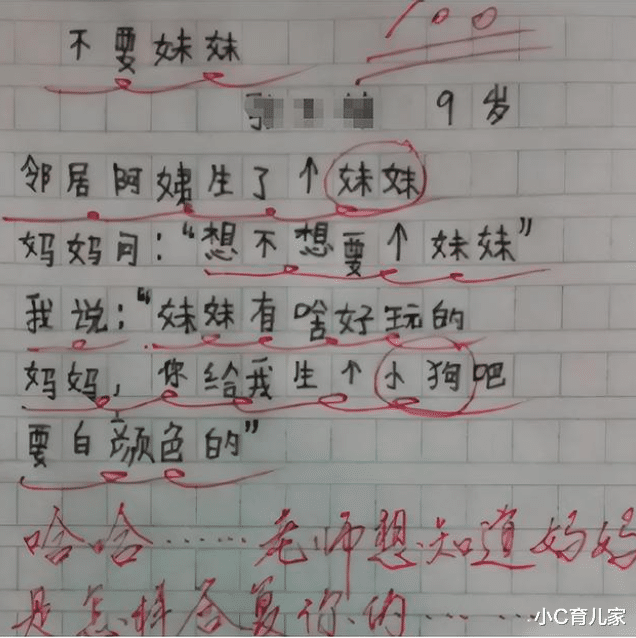 不要妹妹
100
9岁
邻居阿姨生了个妹妹
妈妈问:“想不想要个妹妹”
我说:“妹妹有啥好玩的
妈妈,你给我生个小狗吧
要白颜色的”
哈哈……老师想知道妈妈
是怎样答复你的……
小C育儿家